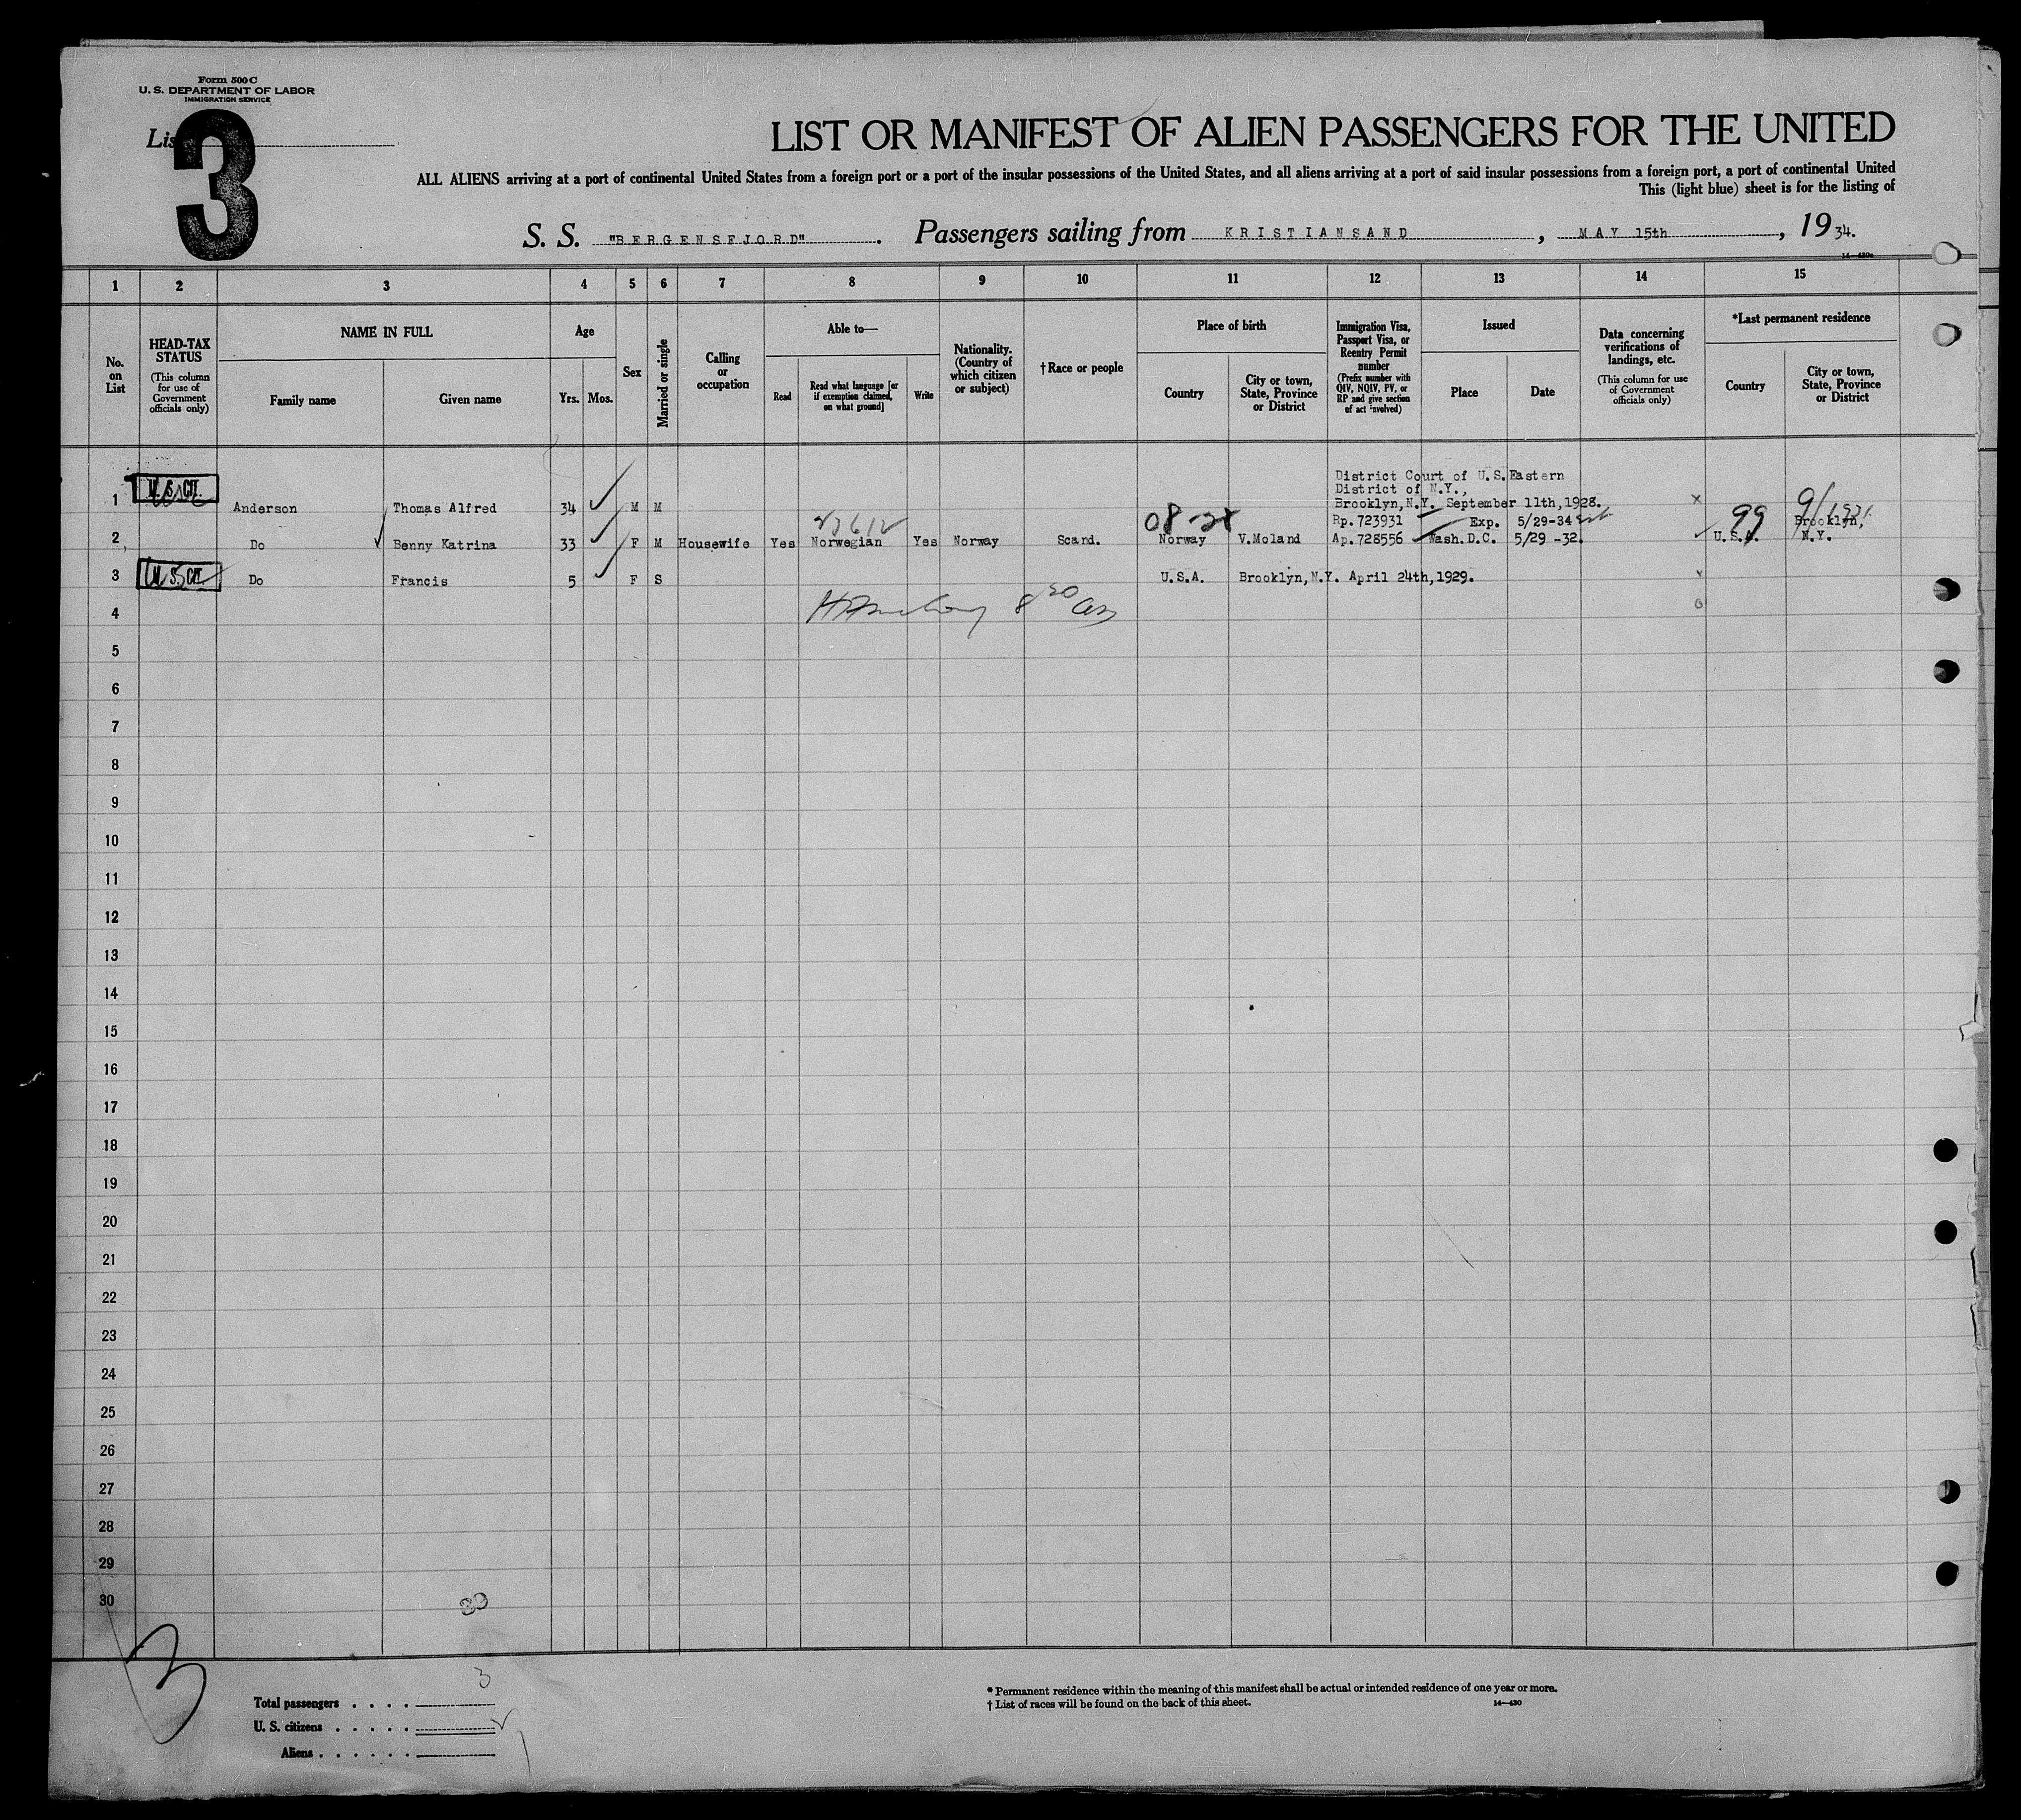 Form 500 C
U. S. DEPARTMENT OF LABOR
IMMIGRATION SERVICE
List
3
LIST OR MANIFEST OF ALIEN PASSENGERS FOR THE UNITED
ALL ALIENS arriving at a port of continental United States from a foreign port or a port of the insular possessions of the United States, and all aliens arriving at a port of said insular possessions from a foreign port, a port of continental United
This (light blue) sheet is for the listing of
S. S. "BERGENSFJORD". Passengers sailing from KRISTIANSAND, MAY 15th, 1934.
1 2 3 4 5 6 7 8 9 10 11 12 13 14 15
No. on List
HEAD-TAX STATUS (This column for use of Government officials only)
NAME IN FULL
Family name Given name
Age
Yrs. Mos.
Sex
Married or single
Calling or occupation
Able to—
Read Read what language [or if exemption claimed, on what ground] Write
Nationality. (Country of which citizen or subject)
†Race or people
Place of birth
Country City or town, State, Province or District
Immigration Visa, Passport Visa, or Reentry Permit number (Prefix number with QIV, NQIV, PV, or RP and give section of act involved)
Issued
Place Date
Data concerning verifications of landings, etc. (This column for use of Government officials only)
*Last permanent residence
Country City or town, State, Province or District
District Court of U.S.Eastern
District of N.Y.,
1 U. S. CIT. Anderson Thomas Alfred 34 M M Brooklyn,N.Y. September 11th,1928. x
08 Rp.723931 Exp. 5/29-34 99 Brooklyn,
2 Do Benny Katrina 33 F M Housewife Yes Norwegian Yes Norway Scand. Norway V.Moland Ap.728556 Wash.D.C. 5/29 -32. U.S.A. N.Y.
3 U. S. CIT. Do Francis 5 F S U.S.A. Brooklyn,N.Y. April 24th,1929.
4
5
6
7
8
9
10
11
12
13
14
15
16
17
18
19
20
21
22
23
24
25
26
27
28
29
30
30
3
Total passengers . . . . 3
U. S. citizens . . . . .
Aliens . . . . . .
* Permanent residence within the meaning of this manifest shall be actual or intended residence of one year or more.
† List of races will be found on the back of this sheet. 14—430